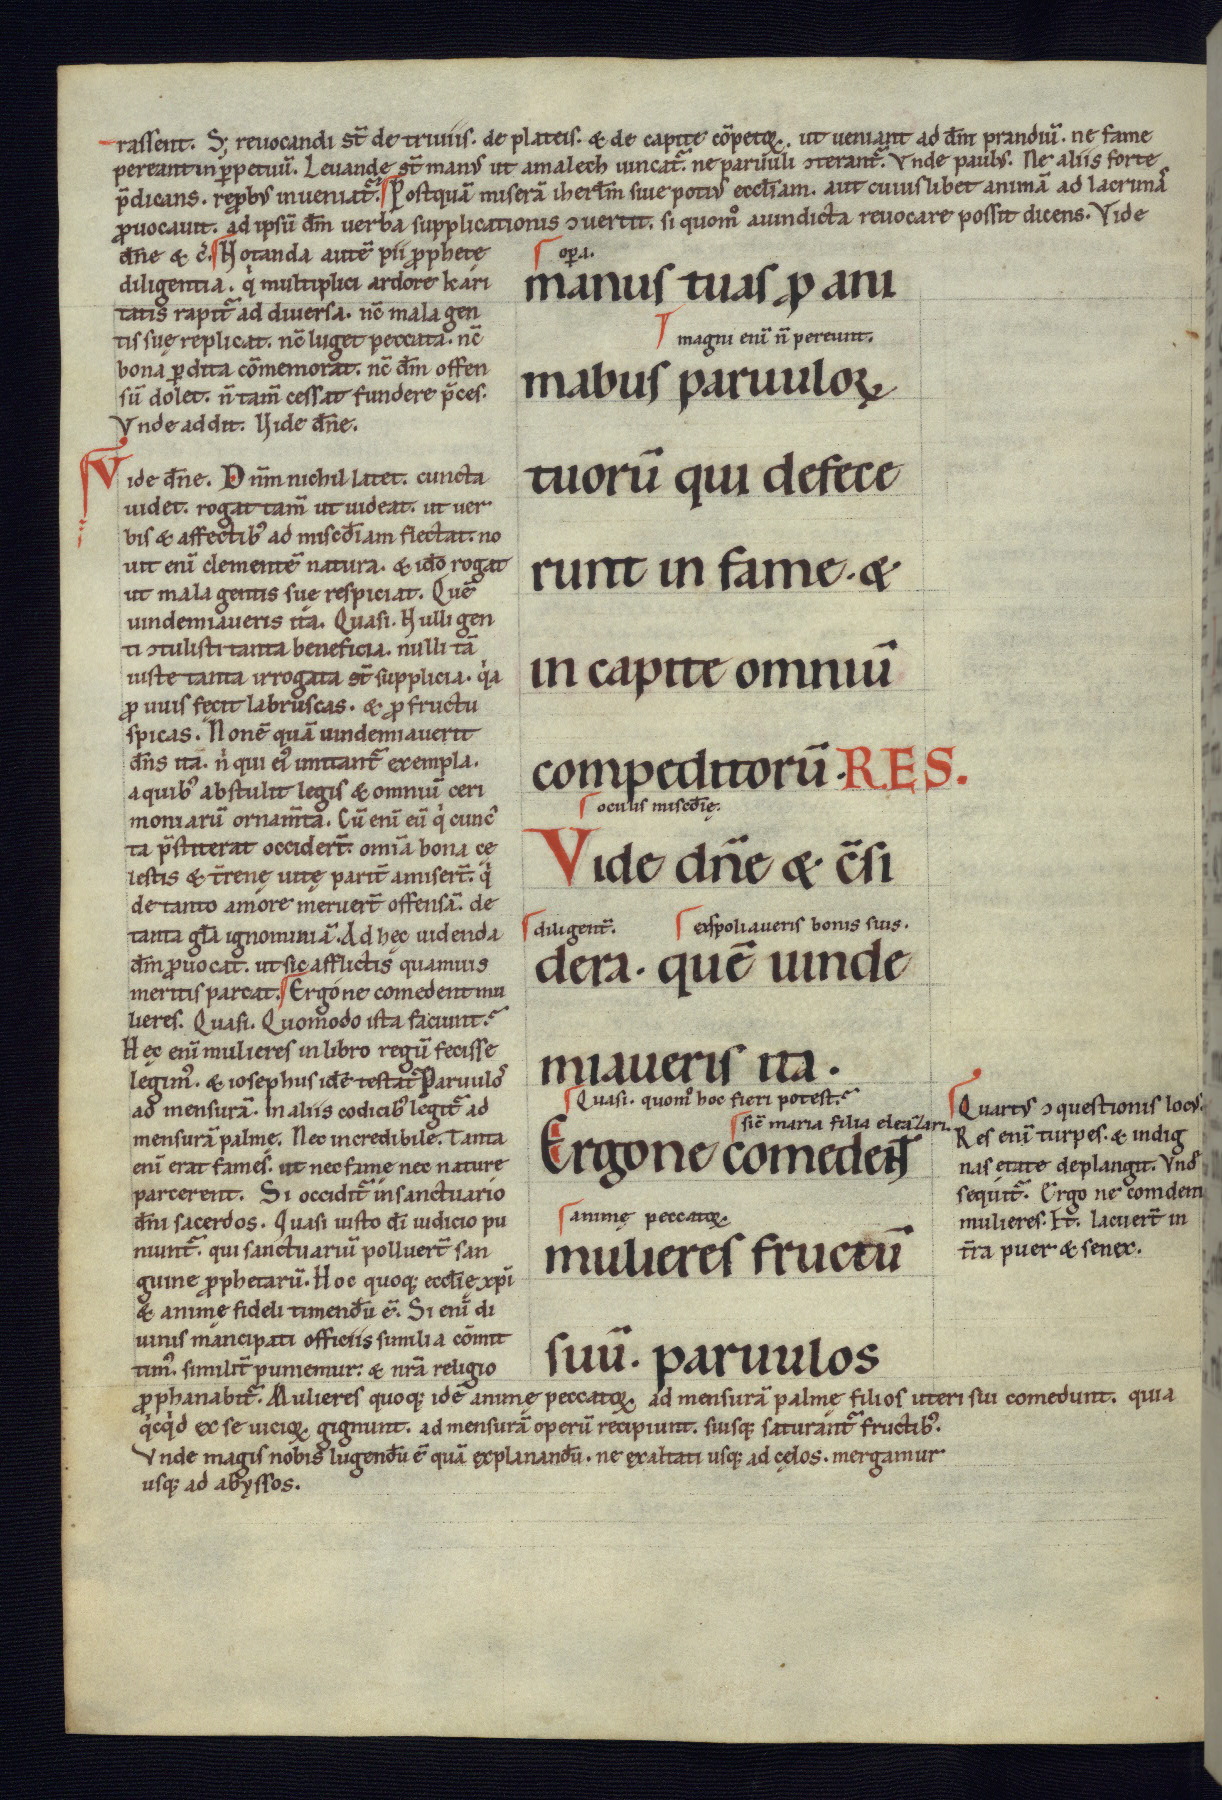 rassent. S; reuocandi st̄ de triuiis. de plateis. & de capite cōpetꝝ. ut ueniant ad dn̄m prandiū. ne fame
pereant in ꝑpetuū. Leuande st̄ manꝰ ut amalech uincat᷑. ne paruuli ꝯterant᷑. Vnde paulꝰ. Ne aliis forte
p̄dicans. reꝓbꝰ inueniat᷑. Postquā miserā iherlm̄ siue potiꝰ eccl̄iam. aut cuiuslibet animā ad lacrimā
ꝓuocauit. ad ipsū dn̄m uerba supplicationis ꝯuertit. si quomͦ a uindicta reuocare possit dicens. Vide
dn̄e & c̄. Notanda autē pii ꝓphete
diligentia. qͥ multiplici ardore kari
tatis rapit᷑ ad diuersa. nc̄ mala gen
tis suę replicat. nc̄ luget peccata. nc̄
bona ꝑdita cōmemorat. nc̄ dn̄m offen
sū dolet. n̄ tam̄ cessat fundere p̄ces.
Vnde addit. Vide dn̄e.
Vide dn̄e. Dn̄m nichil latet. cuncta
uidet. rogat tam̄ ut uideat. ut uer
bis & affectibꝰ ad misc̄diam flectat. no
uit enī clementē natura. & ido rogat
ut mala gentis suę respiciat. Quē
uindemiaueris ita. Quasi. Nulli gen
ti ꝯtulisti tanta beneficia. nulli tā
iuste tanta irrogata st̄ supplicia. qͥa
ꝓ uuis fecit labruscas. & ꝓ fructu
spicas. Nonē quā uindemiauerit
dn̄s ita. nͥ qui eiꝰ imitant᷑ exempla.
a quibꝰ abstulit legis & omniū ceri
moniarū ornam̄ta. Cū enī eū qͥ cunc
ta p̄stiterat occider̄t. omīa bona cę
lestis & t̄renę uitę parit̄ amiser̄t. qͥ
de tanto amore meruer̄t offensā. de
tanta gl̄a ignominiā. Ad hęc uidenda
dn̄m ꝓuocat. ut sic afflictis quamuis
meritis parcat. Ergo ne comedent mu
lieres. Quasi. Quomodo ista faciunt.
Hęc enī mulieres in libro regū fecisse
legimꝰ. & iosephus idē testat᷑. Paruulos
ad mensurā. In aliis codicibꝰ legit᷑ ad
mensurā palmę. Nec incredibile. Tanta
enī erat fames. ut nec fame nec nature
parcerent. Si occidit᷑ in sanctuario
dn̄i sacerdos. Quasi iusto dī iudicio pu
niunt᷑. qui sanctuariū polluer̄t san
guine ꝓphetarū. Hoc quoqꝫ eccl̄ię xp̄i
& animę fideli timendū ē. Si enī di
uinis mancipati officiis similia cōmit
timꝰ. similit̄ puniemur. & nr̄a religio
ꝓphanabit᷑. Mulieres quoqꝫ idē animę peccatꝝ. ad mensurā palmę filios uteri sui comedunt. quia
qͥcqͥd ex se uicioꝝ gignunt. ad mensurā operū recipiunt. suisqꝫ saturant᷑ fructibꝰ.
Vnde magis nobis lugendū ē quā explanandū. ne exaltati usqꝫ ad cęlos. mergamur
usqꝫ ad abyssos.
oꝑa.
manus tuas ꝓ ani
magni enī n̄ pereunt.
mabus paruuloꝝ
tuorū qui defece
runt in fame. &
in capite omniū
compeditorū. RES.
oculis misc̄dię.
Vide dn̄e & c̄si
diligent̄. exspoliaueris bonis suis.
dera. quē uinde
miaueris ita.
Quasi. quomͦ hoc fieri potest.
sic̄ maria filia eleazari.
Ergo ne comedent
animę peccatꝝ.
mulieres fructū
suū. paruulos
Quartꝰ ꝯquestionis locꝰ.
Res enī turpes. & indig
nas etate deplangit. Vnd̄
sequit᷑. Ergo ne comdent
mulieres. Et. Iacuer̄t in
t̄ra puer & senex.